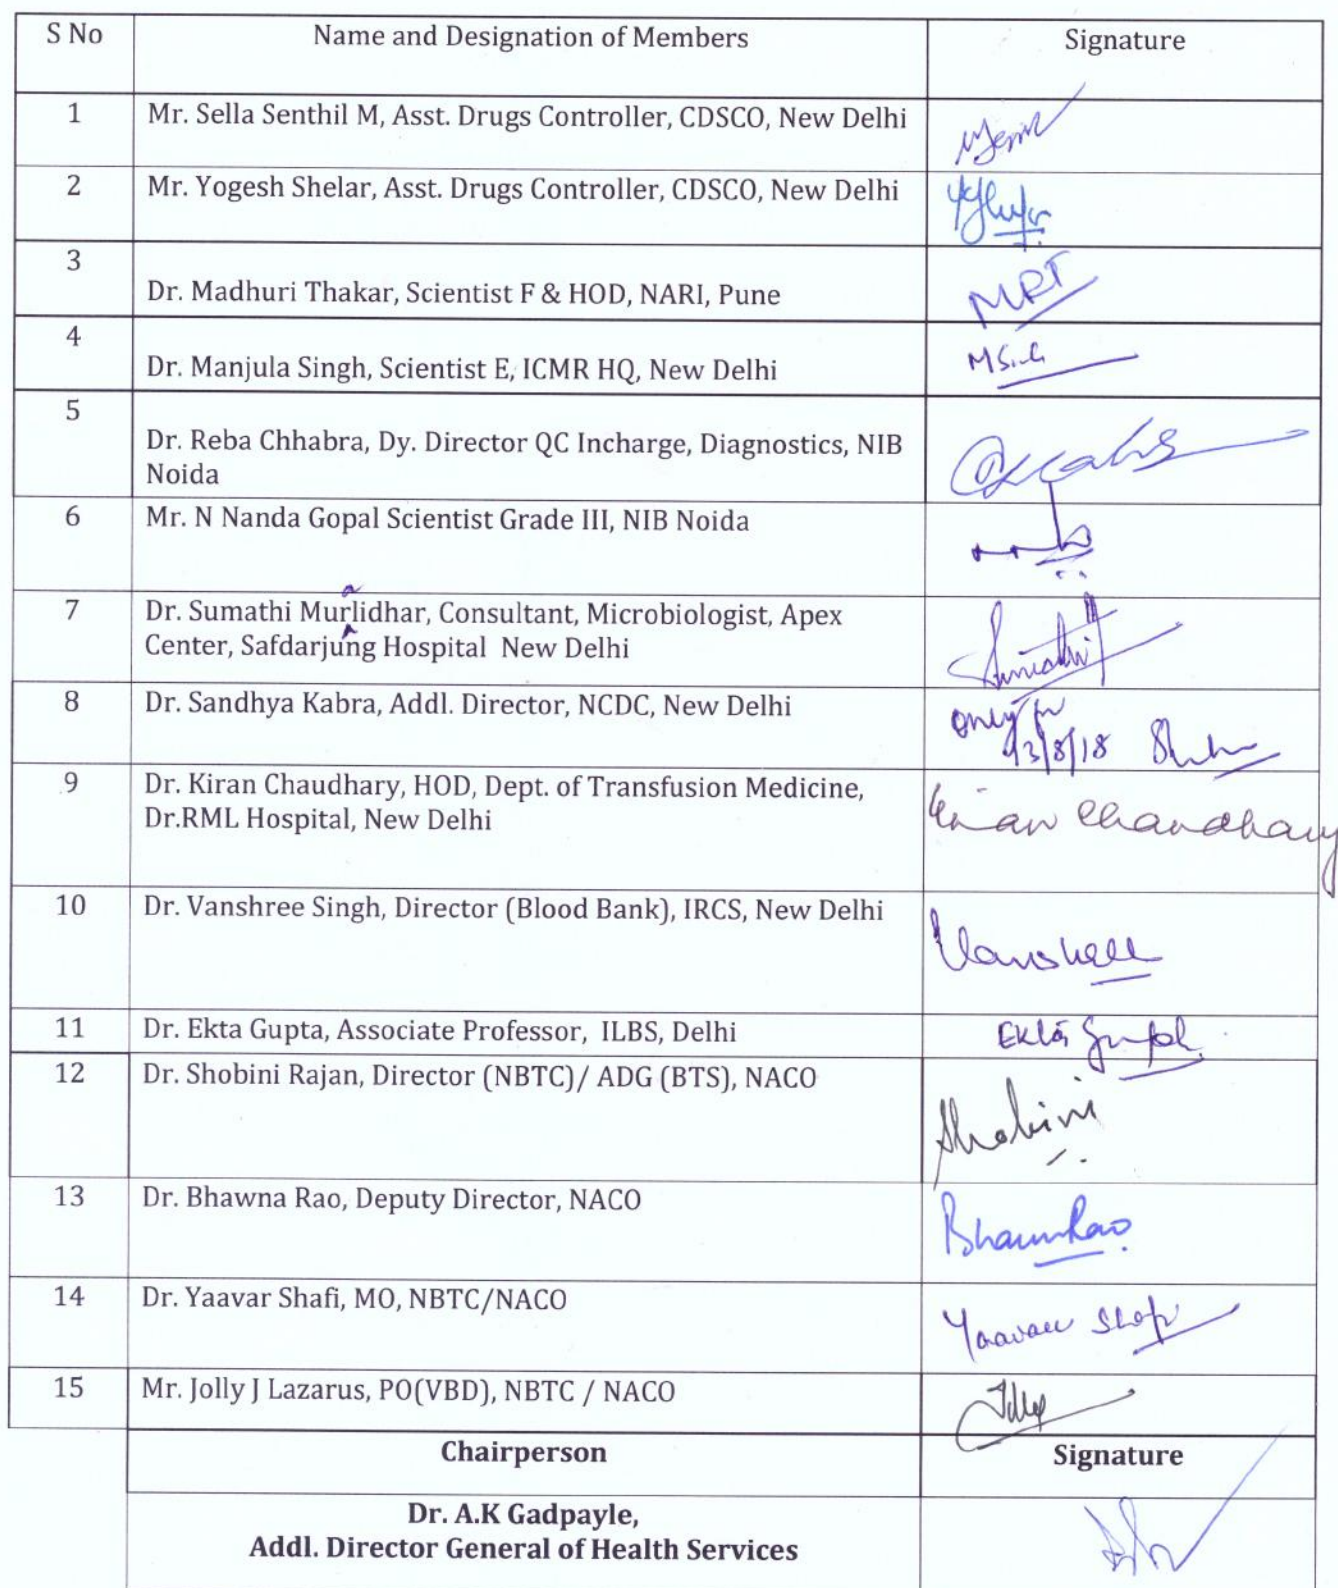 S No Name and Designation of Members Signature
1 Mr. Sella Senthil M, Asst. Drugs Controller, CDSCO, New Delhi
2 Mr. Yogesh Shelar, Asst. Drugs Controller, CDSCO, New Delhi
3
Dr. Madhuri Thakar, Scientist F & HOD, NARI, Pune MRT
4
Dr. Manjula Singh, Scientist E, ICMR HQ, New Delhi
5
Dr. Reba Chhabra, Dy. Director QC Incharge, Diagnostics, NIB
Noida
6 Mr. N Nanda Gopal Scientist Grade III, NIB Noida
7 Dr. Sumathi Murlidhar, Consultant, Microbiologist, Apex
Center, Safdarjung Hospital New Delhi Sumathi
8 Dr. Sandhya Kabra, Addl. Director, NCDC, New Delhi only for
13/8/18
9 Dr. Kiran Chaudhary, HOD, Dept. of Transfusion Medicine,
Dr.RML Hospital, New Delhi Kiran Chaudhary
10 Dr. Vanshree Singh, Director (Blood Bank), IRCS, New Delhi
Vanshree
11 Dr. Ekta Gupta, Associate Professor, ILBS, Delhi Ekta Gupta
12 Dr. Shobini Rajan, Director (NBTC)/ ADG (BTS), NACO
Shobini
13 Dr. Bhawna Rao, Deputy Director, NACO
Bhawna Rao
14 Dr. Yaavar Shafi, MO, NBTC/NACO
Yaavar Shafi
15 Mr. Jolly J Lazarus, PO(VBD), NBTC / NACO Jolly
Chairperson Signature
Dr. A.K Gadpayle,
Addl. Director General of Health Services